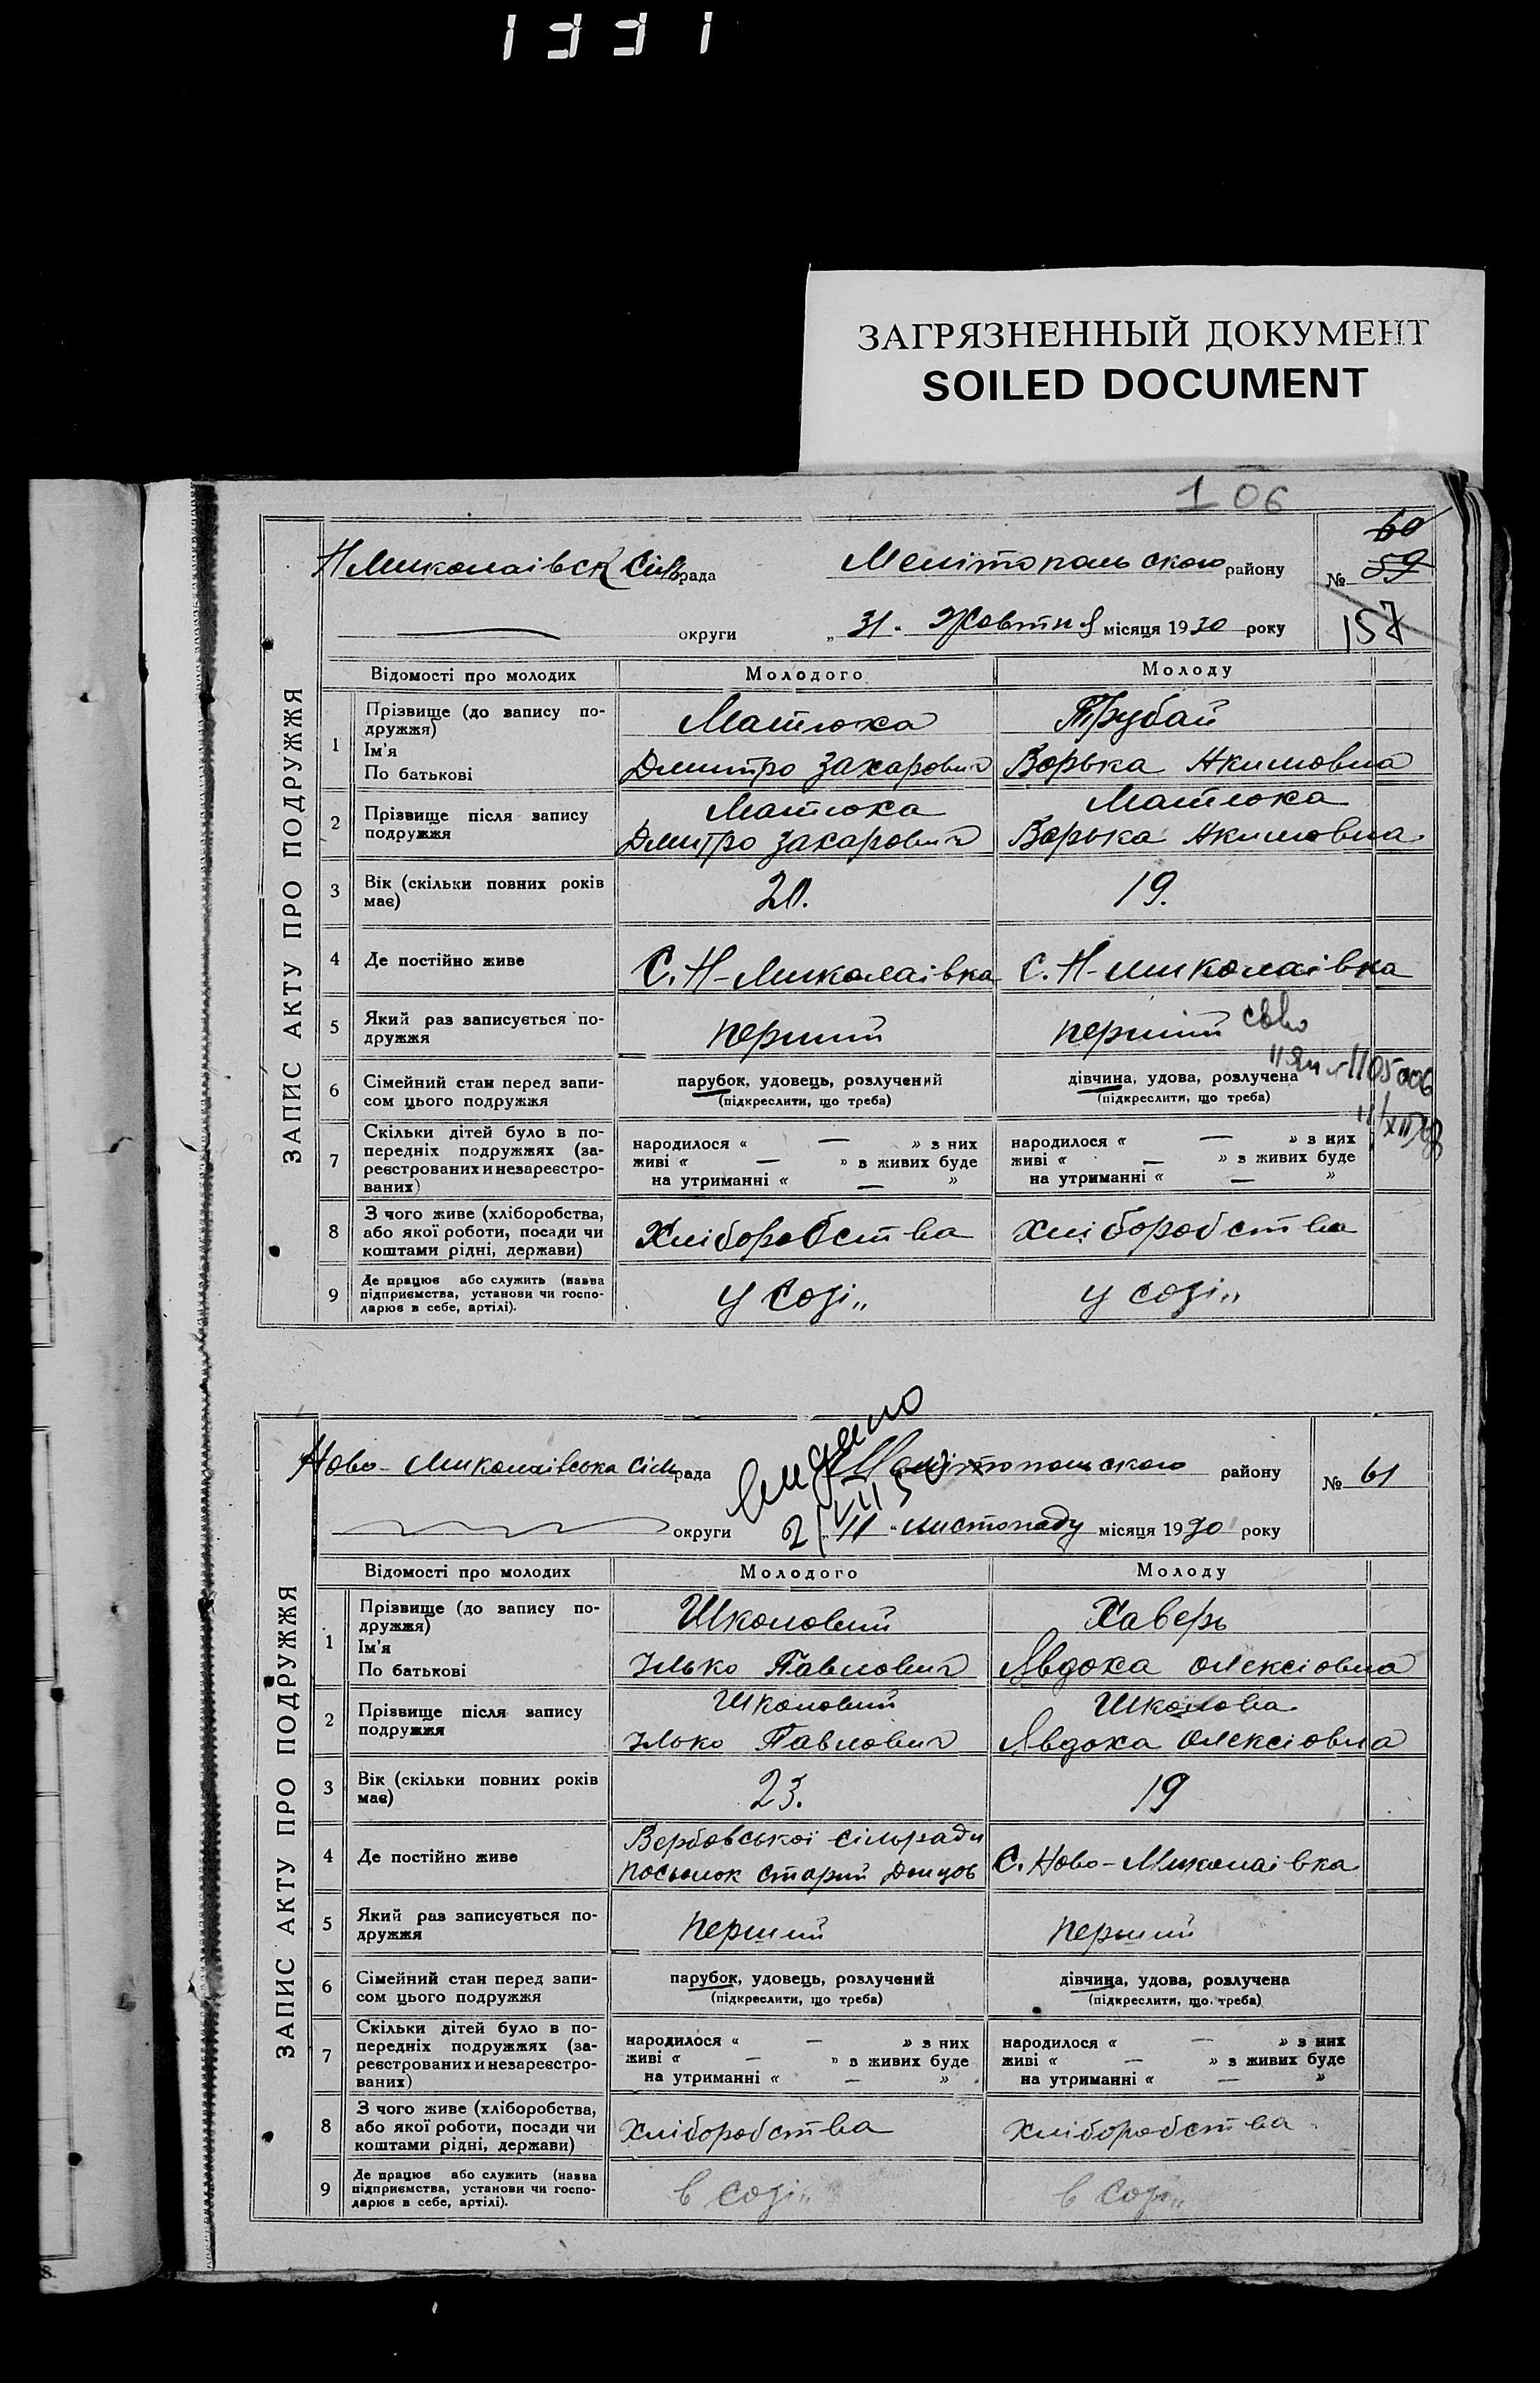 1331
ЗАГРЯЗНЕННЫЙ ДОКУМЕНТ
SOILED DOCUMENT
106
ЗАПИС АКТУ ПРО ПОДРУЖЖЯ
Н Миколаівск Сільрада Мелітопольского району № 60 59
округи „31" Жовтня місяця 1930 року 157
Відомості про молодих Молодого Молоду
1 Прізвище (до запису подружжя) Матюха Трубай
Ім'я
По батькові Дмитро Захарович Варька Якимовна
2 Прізвище після запису подружжя Матюха Матюха
Дмитро Захарович Варька Якимовна
3 Вік (скільки повних років має) 20. 19.
4 Де постійно живе С. Н-Миколаівка С. Н-Миколаівка
5 Який раз записується подружжя перший перший
6 Сімейний стан перед записом цього подружжя парубок, удовець, розлучений дівчина, удова, розлучена
(підкреслити, що треба) (підкреслити, що треба)
7 Скільки дітей було в попередніх подружжях (зареєстрованих и незареєстрованих) народилося « — » з них народилося « — » з них
живі « — » з живих буде живі « — » з живих буде
на утриманні « — » на утриманні « — »
8 З чого живе (хліборобства, або якої роботи, посади чи коштами рідні, держави) Хліборобства хліборобства
9 Де працює або служить (назва підприємства, установи чи господарює в себе, артілі). у созі„ у созі„
ЗАПИС АКТУ ПРО ПОДРУЖЖЯ
Видано
Ново-Миколаівська Сільрада Мелітопольского району № 61
округи „11" листопаду місяця 1930 року
Відомості про молодих Молодого Молоду
1 Прізвище (до запису подружжя) Школовий Хаверь
Ім'я
По батькові Ілько Павлович Явдоха Олексіовна
2 Прізвище після запису подружжя Школовий Школова
Ілько Павлович Явдоха Олексіовна
3 Вік (скільки повних років має) 23. 19
4 Де постійно живе Вербовської сільради
посьолок старий С. Ново-Миколаівка
5 Який раз записується подружжя перший перший
6 Сімейний стан перед записом цього подружжя парубок, удовець, розлучений дівчина, удова, розлучена
(підкреслити, що треба) (підкреслити, що треба)
7 Скільки дітей було в попередніх подружжях (зареєстрованих и незареєстрованих) народилося « — » з них народилося « — » з них
живі « — » з живих буде живі « — » з живих буде
на утриманні « — » на утриманні « — »
8 З чого живе (хліборобства, або якої роботи, посади чи коштами рідні, держави) хліборобства хліборобства
9 Де працює або служить (назва підприємства, установи чи господарює в себе, артілі). в созі„ в созі„